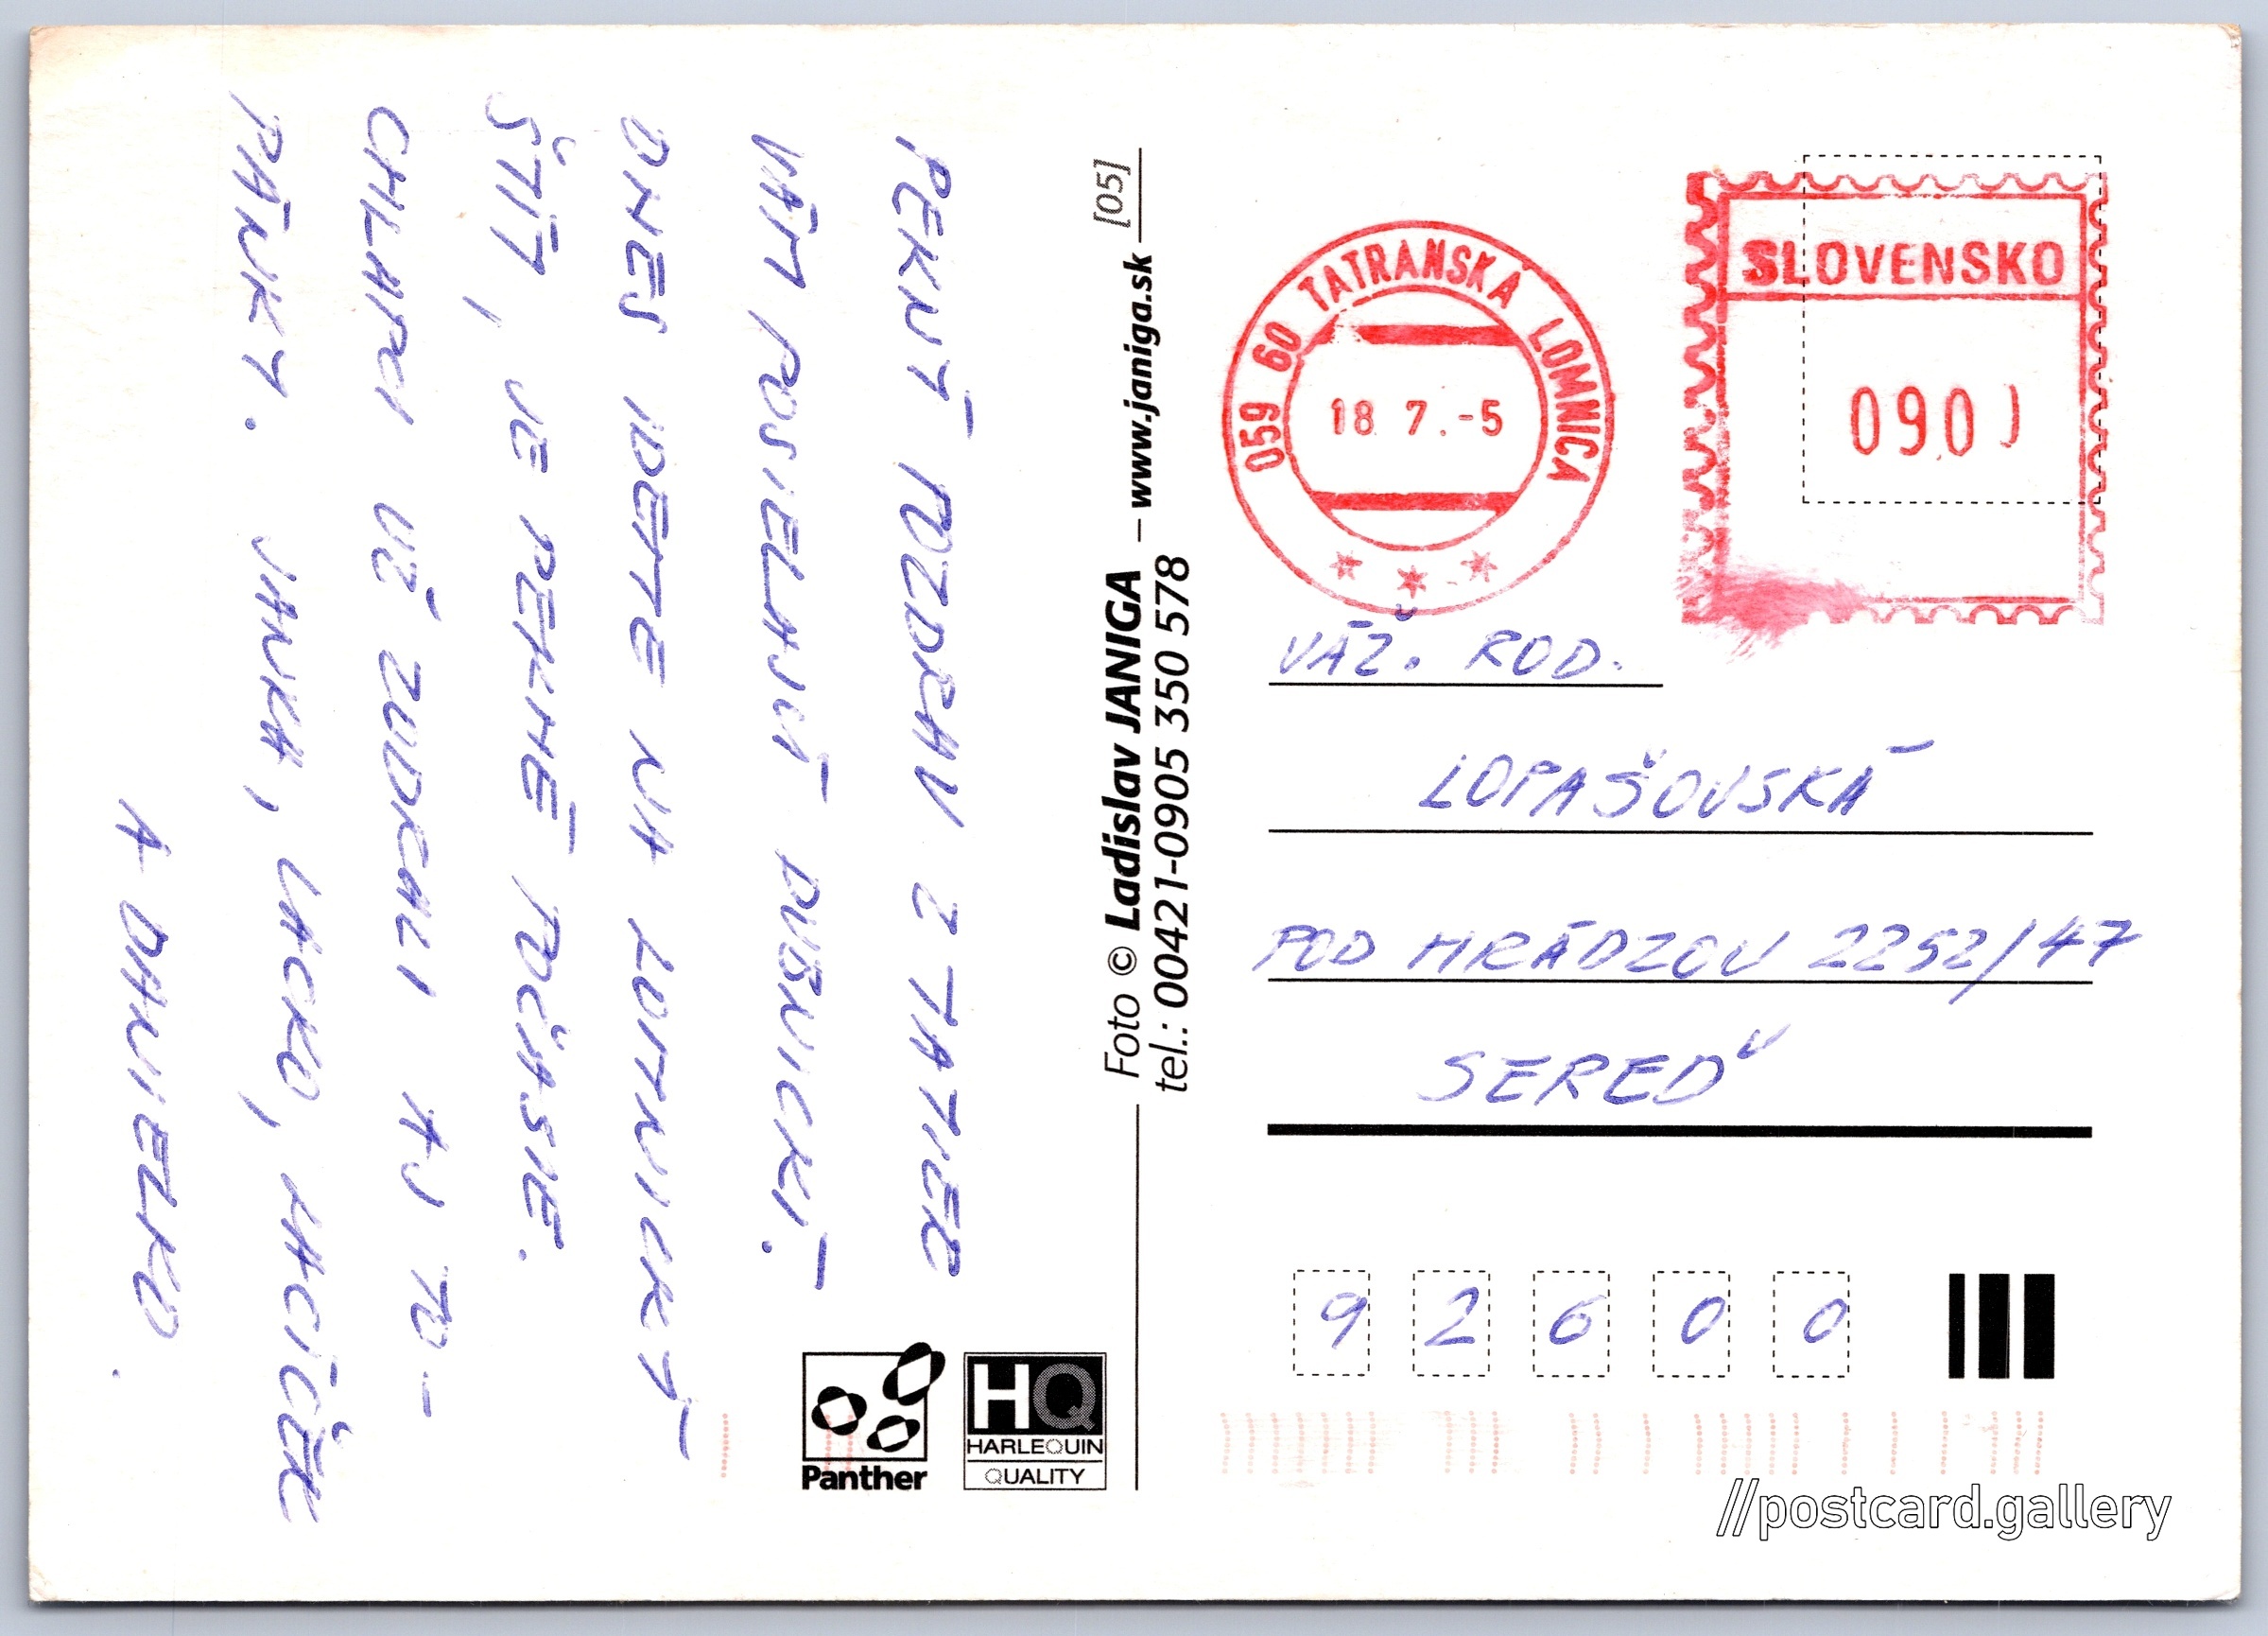 PEKNÝ POZDRAV Z TATIER
VÁM POSIELAJÚ DUBNICKÍ.
DNES IDEME NA LOMNICKÝ
ŠTÍT, JE PEKNÉ POČASIE.
CHLAPCI UŽ ZODRALI AJ TO-
PÁNKY. JANKA, LACKO, MACÍČEK
A DANIELKO.
Foto © Ladislav JANIGA – www.janiga.sk [05]
tel.: 00421-0905 350 578
Panther
HQ
HARLEQUIN
QUALITY
059 60 TATRANSKÁ LOMNICA
18 7.-5
SLOVENSKO
090
VÁŽ. ROD.
LOPAŠOVSKÁ
POD HRÁDZOU 2252/47
SEREĎ
92600
//postcard.gallery